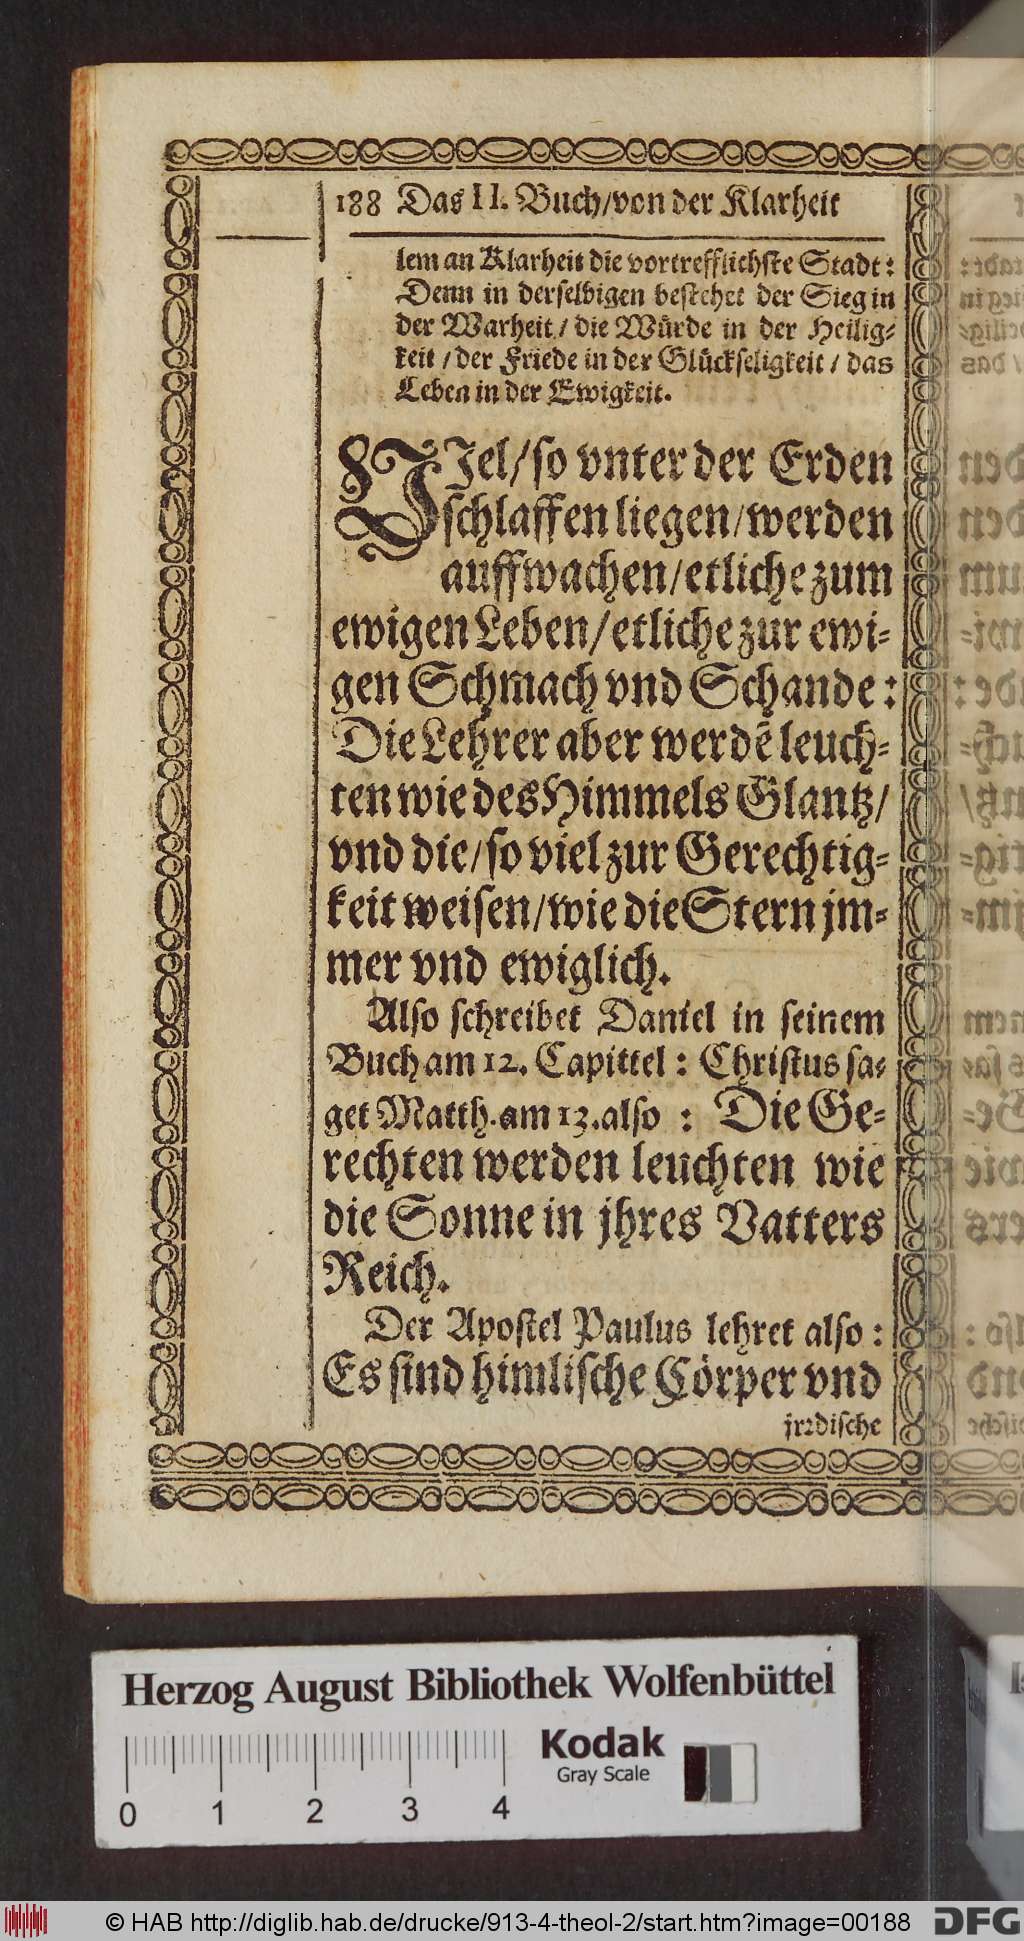 188 Das II. Buch/von der Klarheit
lem an Klarheit die vortrefflichste Stadt:
Denn in derselbigen bestehet der Sieg in
der Warheit/ die Würde in der Heilig-
keit/der Friede in der Glückseligkeit/ das
Leben in der Ewigkeit.
VJel/so vnter der Erden
schlaffen liegen/werden
auffwachen/etliche zum
ewigen Leben/etliche zur ewi-
gen Schmach vnd Schande:
Die Lehrer aber werdẽ leuch-
ten wie des Himmels Glantz/
vnd die/so viel zur Gerechtig-
keit weisen/wie die Stern jm-
mer vnd ewiglich.
Also schreibet Daniel in seinem
Buch am 12. Capittel: Christus sa-
get Matth. am 13. also: Die Ge-
rechten werden leuchten wie
die Sonne in jhres Vatters
Reich.
Der Apostel Paulus lehret also:
Es sind himlische Cörper vnd
jrꝛdische
Herzog August Bibliothek Wolfenbüttel
Kodak
Gray Scale
0 1 2 3 4
© HAB http://diglib.hab.de/drucke/913-4-theol-2/start.htm?image=00188
DFG